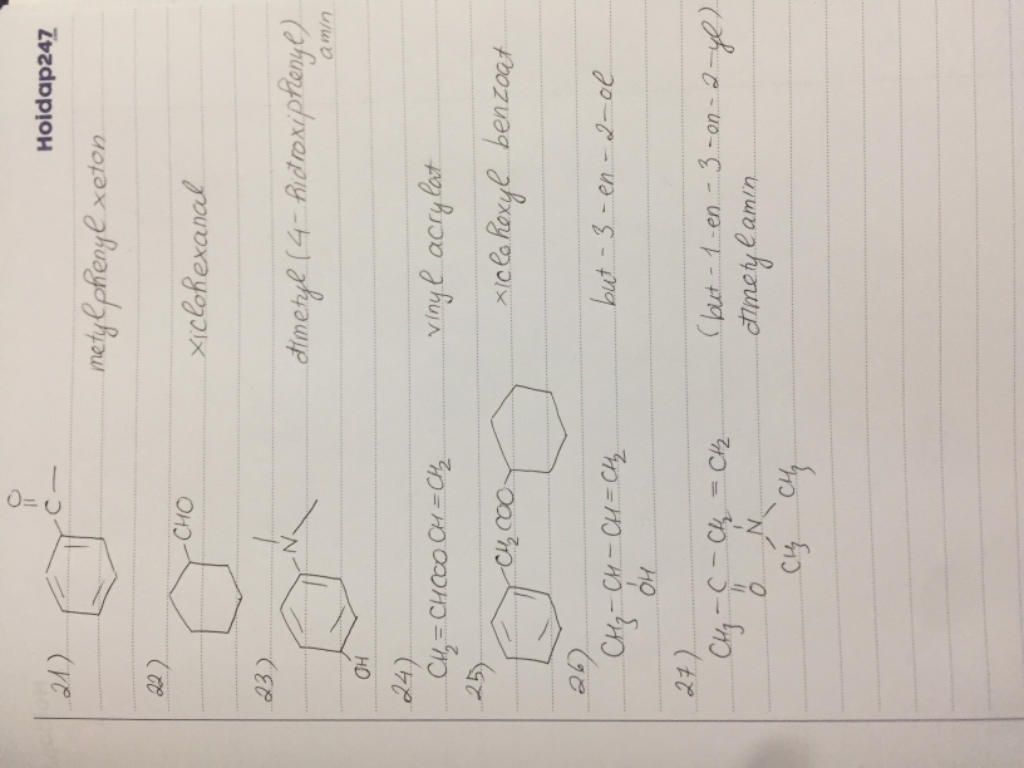 Hoidap247
21) C O metylphenyl xeton
22) CHO xiclohexanal
23) N OH đimetyl (4-hidroxiphenyl) amin
24) CH2=CHCOOCH=CH2 vinyl acrylat
25) CH2COO xiclohexyl benzoat
26) CH3-CH-CH=CH2 but-3-en-2-ol
OH
27) CH3-C-CH2=CH2 (but-1-en-3-on-2-yl)
O N đimetylamin
CH3 CH3